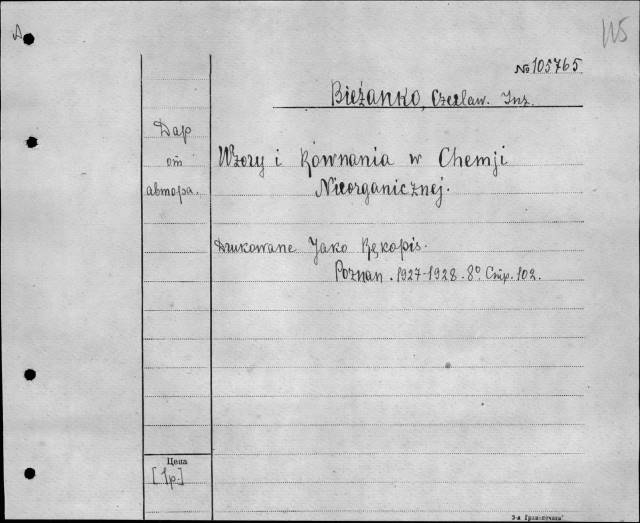 А
115
№ 105765
Bieżanko, Czesław. Inż.
Дар
от
автора.
Wzory i Równania w Chemji
Nieorganicznej.
Drukowane Jako Rękopis.
Poznan. 1927-1928. 8º. Стр. 102.
Цена
[1р.]